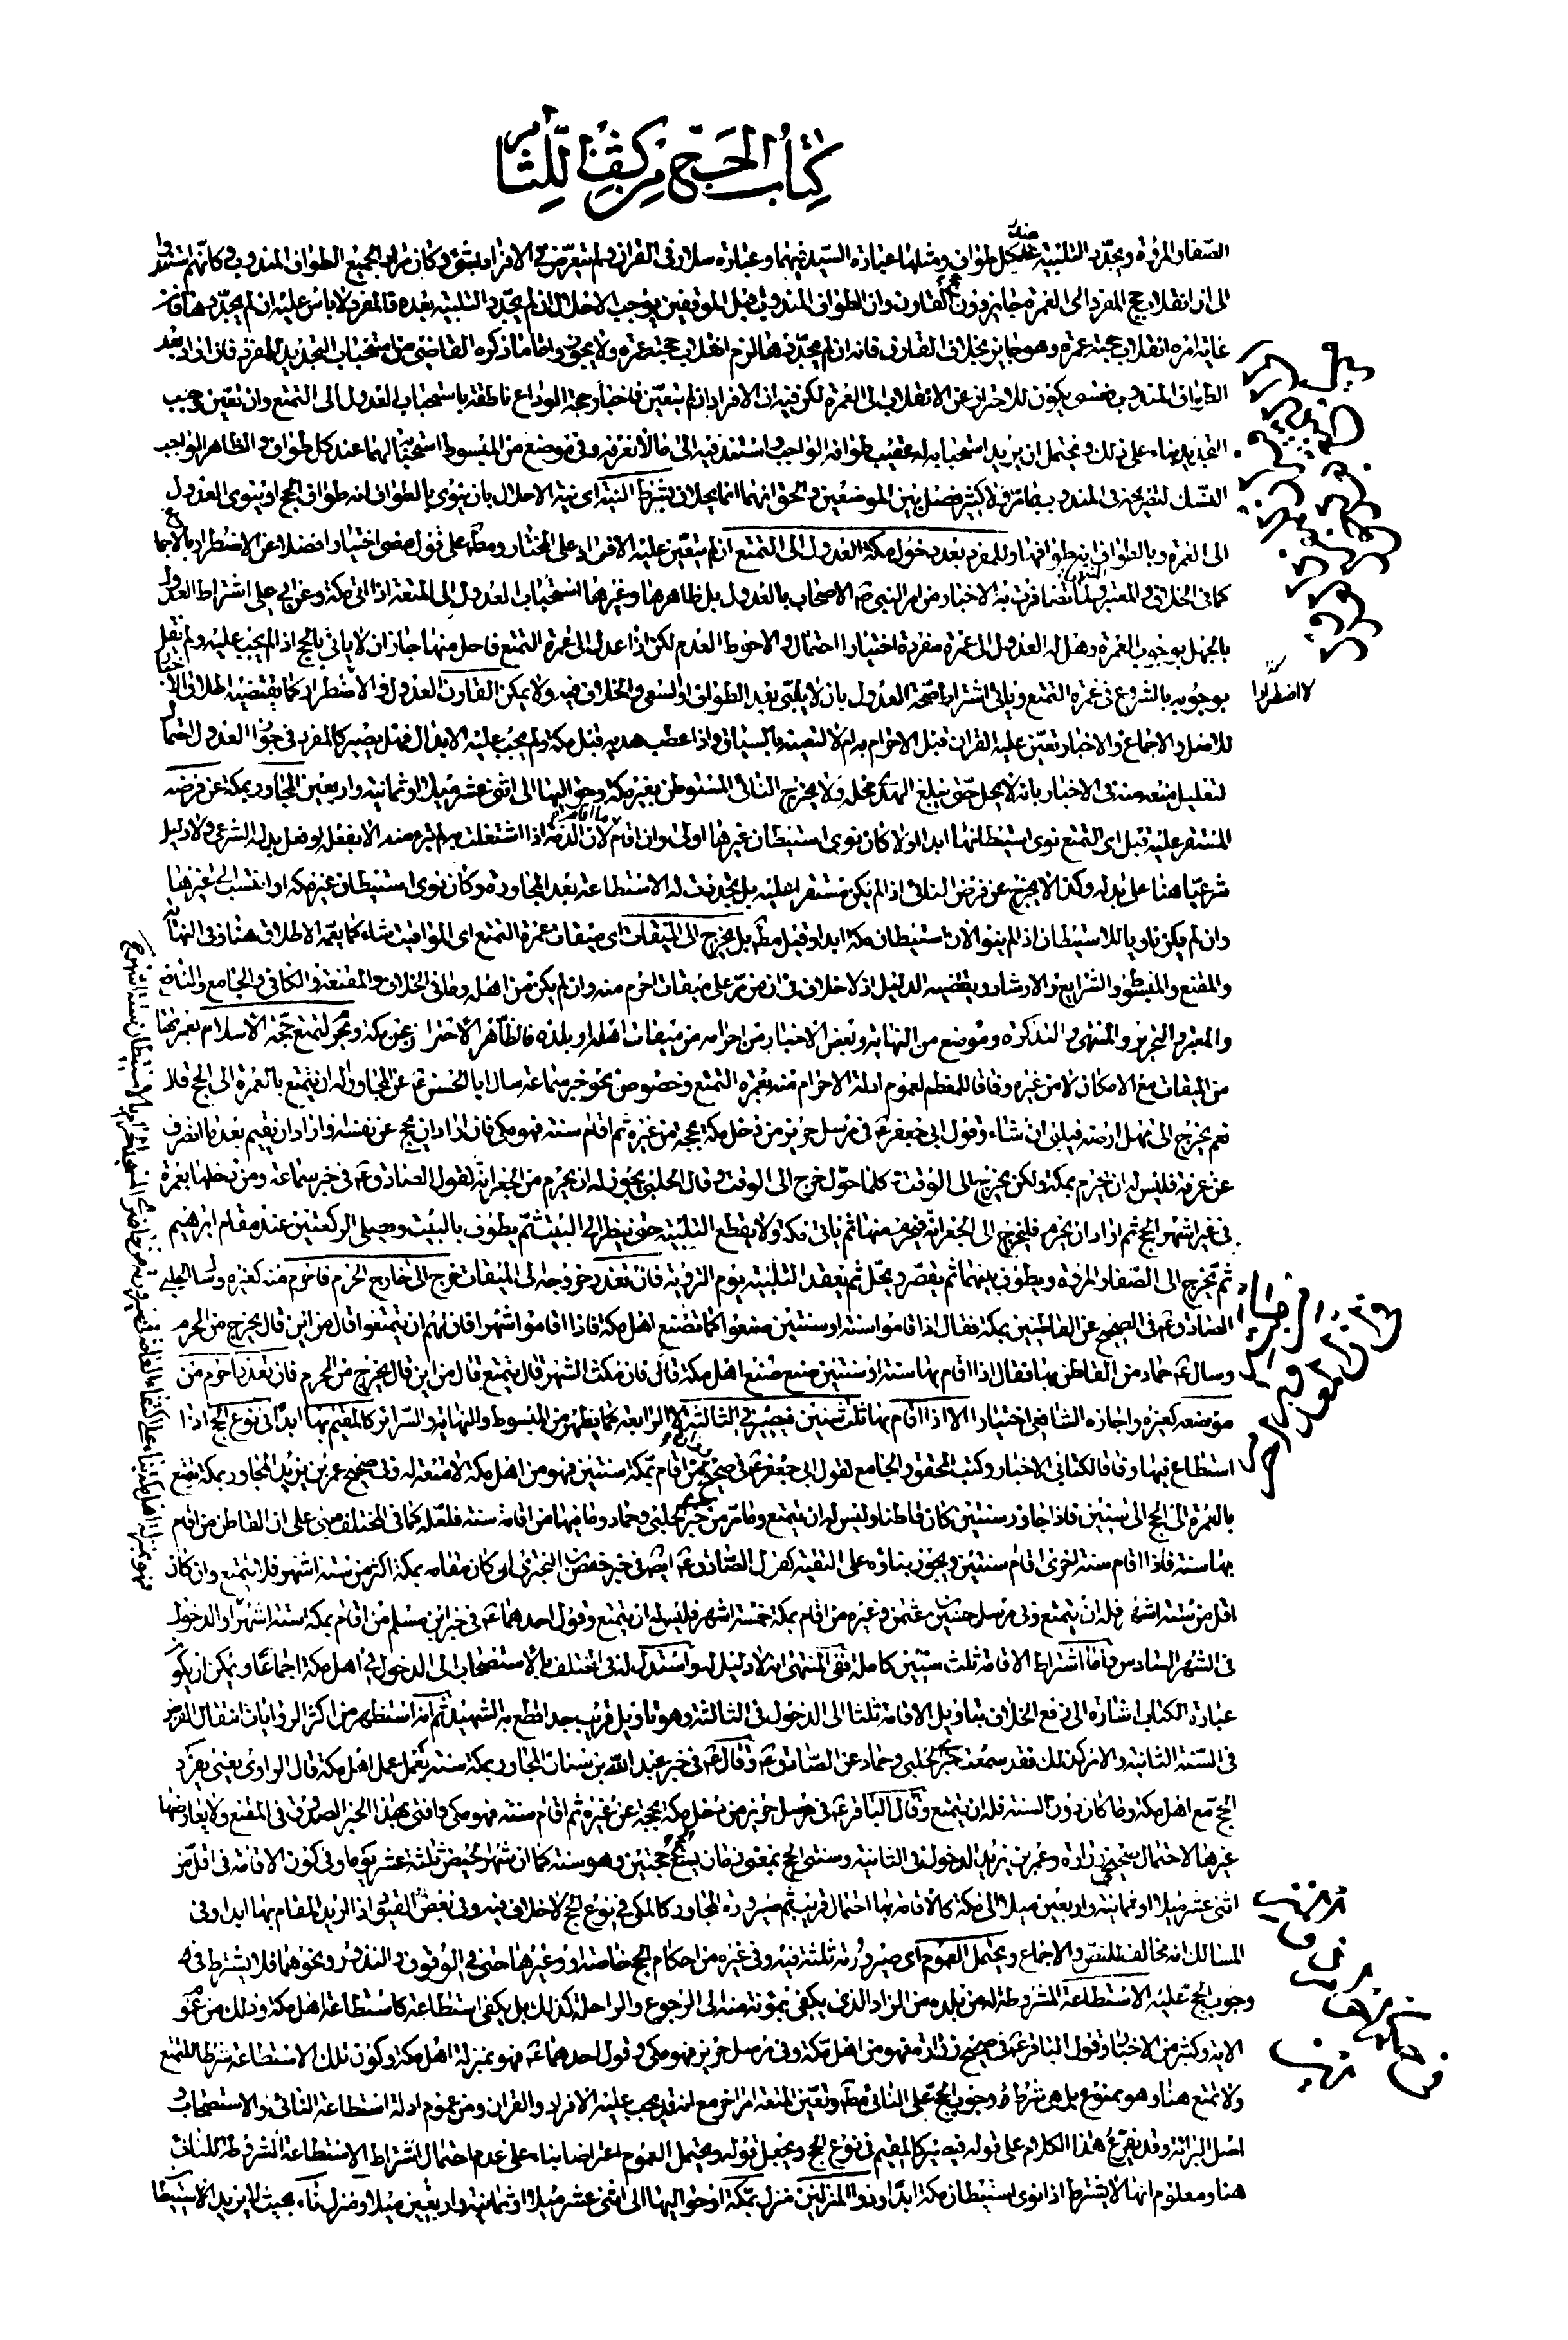 كتاب الحج من كشف اللثام
الصفا والمروة ويجدد التلبية عند كل طواف ومثلها عبارة السيد فيهما وعبارة سلار في القران ولم يتعرض في الافراد لشئ وكان مراد الجميع الطواف المندوب وكانهم استندوا
الى ان انقلاب حج المفرد الى العمرة جايز دون القارن وان الطواف المندوب قبل الموقفين يوجب الاحلال ان لم يجدد التلبية بعده فالمفرد لا باس عليه ان لم يجددها فان
غاية امره انقلاب حجته عمرة وهو جايز بخلاف القارن فانه ان لم يجددها لزم انقلاب حجته عمرة ولا يجوز واما ما ذكره القاضي من استحباب التجديد للمفرد فان اراد بعد
الطواف المندوب فعسى يكون للاحتراز عن الانقلاب الى العمرة لكن فيه ان الافراد ان لم يتعين فاخبار حجة الوداع ناطقة باستحباب العدول الى التمتع وان تعين وجب
التجديد بناء على ذلك ويحتمل ان يريد استحبابه له عقيب طوافه الواجب واستند فيه الى ما لا نعرفه وفي موضع من المبسوط استحبابها لهما عند كل طواف والظاهر الواجب
النسك لتصريحه في المندوب بما مر ولا كثير فصل بين الموضعين والحق انهما انما يحلان بشرط النية اي نية الاحلال بان ينوي بالطواف انه طواف الحج او ينوي العدول
الى العمرة وبالطواف انه طوافها وللمفرد بعد دخول مكة العدول الى التمتع ان لم يتعين عليه الافراد على المختار ومطلقا على قول مضى اختيارا فضلا عن الاضطرار بالاجماع
كما في الخلاف والمعتبر والمنتهى لما تضافرت به الاخبار من امر النبي ص الاصحاب بالعدول بل ظاهرها وغيرها استحباب العدول الى المتعة اذا اتى مكة وعن ابي على اشتراط العدول
بالجهل بوجوب العمرة وهل له العدول الى عمرة مفردة اختيارا احتمال والاحوط العدم لكن اذا عدل الى عمرة التمتع فاحل منها جاز ان لا ياتي بالحج اذا لم يجب عليه ولم نقل
بوجوبه بالشروع في عمرة التمتع وياتي اشتراط صحة العدول بان لا يلبي بعد الطواف او السعي والخلاف فيه ولا يمكن القارن العدول ولا الاضطرار كما يقتضيه اطلاق الاخبار
للاصل والاجماع والاخبار وتعين عليه القران قبل الاحرام به ام لا لتعينه بالسياق واذا عطب هديه قبل مكة ولم يجب عليه الابدال فهل يصير كالمفرد في جواز العدول احتمال
لتعليل منعه منه في الاخبار بانه لا يحل حتى يبلغ الهدي محله ولا يخرج النائي المستوطن بغير مكة وحواليها الى اثني عشر ميلا او ثمانية واربعين المجاور بمكة عن فرضه
المستقر عليه قبل اي التمتع نوى استيطانها ابدا اولا كان نوى استيطان غيرها اولى وان اقام ما اقام لان الذمة اذا اشتغلت بامر لم تبرء منه الا بفعله او فعل بدله الشرعي ولا دليل
شرعيا هنا على بدله وكذا لا يخرج عن فرض النائي اذا لم يكن مستقرا عليه بل تجددت له الاستطاعة بعد المجاورة وكان نوى استيطان غير مكة او انتسب الى غيرها
وان لم يكن ناويا للاستيطان اذ لم ينو الان استيطان مكة ابدا وقيل مطلقا بل يخرج الى الميقات اي ميقات عمرة التمتع اي المواقيت شاء كما يعمه الاطلاق هنا وفي النهاية
والمقنع والمبسوط والشرايع والارشاد ويقتضيه الدليل اذ لا خلاف في ان من مر على ميقات احرم منه وان لم يكن من اهله وما في الخلاف والمقنعة والكافي والجامع والنافع
والمعتبر والتحرير والمنتهى والتذكرة وموضع من النهاية وبعض الاخبار من احرامه من ميقات اهله او بلده فالظاهر الاحتراز عن مكة ونحو لتمتع حجة الاسلام بعمرتها
من الميقات مع الامكان لا من غيره وفاقا للمعظم لعموم ادلة الاحرام منه بعمرة التمتع وخصوص نحو خبر سماعة سال ابا الحسن ع عن المجاور اله ان يتمتع بالعمرة الى الحج قال
نعم يخرج الى مهل ارضه فيلبي ان شاء وقول ابي جعفر ع في مرسل حريز من دخل مكة بحجة عن غيره ثم اقام سنة فهو مكي فان اراد ان يحج عن نفسه او اراد ان يقيم بعد ما انصرف
عن عرفة فليس له ان يحرم بمكة ولكن يخرج الى الوقت وكلما حول خرج الى الوقت وقال الحلبي يجوز له ان يحرم من الجعرانة لقول الصادق ع في خبر سماعة ومن دخلها بعمرة
في غير اشهر الحج ثم اراد ان يحرم فليخرج الى الجعرانة فيحرم منها ثم ياتي مكة ولا يقطع التلبية حتى ينظر الى البيت ثم يطوف بالبيت ويصلي الركعتين عند مقام ابرهيم
ثم يخرج الى الصفا والمروة ويطوف بينهما ثم يقصر ويحل ثم يعقد التلبية يوم التروية فان تعذر خروجه الى الميقات خرج الى خارج الحرم فاحرم منه كغيره وسال الحلبي
الصادق ع في الصحيح عن القاطنين بمكة فقال اذا قاموا سنة او سنتين صنعوا كما تصنع اهل مكة فاذا اقاموا شهرا فان لهم ان يتمتعوا قال من اين قال يخرج من الحرم
وساله ع حماد من القاطن بها فقال اذا اقام بها سنة او سنتين صنع صنع اهل مكة قال فان مكث الشهر قال يتمتع قال من اين قال يخرج من الحرم فان تعذر احرم من
موضعه كغيره واجازه الشافعي اختيارا الا اذا اقام بها ثلث سنين فيصير في الثالثة لا الرابعة كما يظهر من المبسوط والنهاية والسرائر كالمقيم بها ابدا في نوع الحج اذا
استطاع فيها وفاقا لكتابي الاخبار وكتب المحقق والجامع لقول ابي جعفر ع في صحيح زرارة من اقام بمكة سنتين فهو من اهل مكة لا متعة له وفي صحيح عمر بن يزيد المجاور بمكة يتمتع
بالعمرة الى الحج الى سنتين فاذا جاوز سنتين كان قاطنا وليس له ان يتمتع وما مر من خبر الحلبي وحماد وما فيها من اقامة سنة فلعله كما في المختلف مبني على ان القاطن من اقام
بها سنة فاذا اقام سنة اخرى اقام سنتين ويجوز بناؤه على التقية كقول الصادق ع ايضا في خبر حفص بن البختري ان كان مقامه بمكة اكثر من ستة اشهر فلا يتمتع وان كان
اقل من ستة اشهر فله ان يتمتع وفي مرسل حسين بن عثمن وغيره من اقام بمكة خمسة اشهر فليس له ان يتمتع وقول احدهما ع في خبر ابن مسلم من اقام بمكة ستة اشهر او الدخول
في الشهر السادس واما اشتراط الاقامة ثلث سنين كاملة ففي المنتهى انه لا دليل له واستدل له في المختلف بالاستصحاب الى الدخول في اهل مكة اجماعا ويمكن ان يكون
عبارة الكتاب اشارة الى رفع الخلاف بتاويل الاقامة ثلثا الى الدخول في الثالثة وهو تاويل قريب جدا قطع به الشهيد ثم انه استظهر من اكثر الروايات انتقال الفرض
في السنة الثانية والامر كذلك فقد سمعت خبر الحلبي وحماد عن الصادق ع وقال ع في خبر عبد الله بن سنان المجاور بمكة سنة يعمل عمل اهل مكة قال الراوي يعني يفرد
الحج مع اهل مكة وما كان دون السنة فله ان يتمتع وقال الباقر ع في مرسل حريز من دخل مكة بحجة عن غيره ثم اقام سنة فهو مكي وافتى بهذا الخبر الصدوق في المقنع ولا يعارضها
غيرها لاحتمال صحيحي زرارة وعمر بن يزيد الدخول في الثانية وسنتي الحج بمعنى زمان يسع حجتين وهو سنة كما ان شهر الحيض ثلثة عشر يوما وفي كون الاقامة في اقل من
اثني عشر ميلا او ثمانية واربعين ميلا الى مكة كالاقامة بها احتمال قريب ثم صيرورة المجاور كالمكي في نوع الحج لا خلاف فيه وفي بعض القيود اذا اريد المقام بها ابدا وفي
المسالك انه مخالف للنص والاجماع ويحتمل العموم اي صيرورته ثلثة فيه وفي غيره من احكام الحج خاصة او وغيرها حتى في الوقوف والنذور ونحوهما فلا يشترط في
وجوب الحج عليه الاستطاعة المشروطة له من بلده من الزاد الذي يكفي بمؤنته منه الى الرجوع والراحلة كذلك بل يكفي استطاعة كاستطاعة اهل مكة وذلك من عموم
الاية وكثير من الاخبار وقول الباقر ع في صحيح زرارة فهو من اهل مكة وفي مرسل حريز فهو مكي وقول احدهما ع فهو بمنزلة اهل مكة وكون تلك الاستطاعة شرطا للتمتع
ولا تمتع هنا وهو ممنوع بل هي شرط وجوب الحج على النائي مطلقا وتعين المتعة امر اخر مع انه قد يجب عليه الافراد والقران ومن عموم ادلة استطاعة النائي والاستصحاب
اصل البرائة وقد يفرع هذا الكلام على قوله فيصير كالمقيم في نوع الحج ويجعل قوله ويحتمل العموم اعتراضا بناء على عدم احتمال اشتراط الاستطاعة المشروطة للنائي
هنا ومعلوم انها لا يشترط اذا نوى استيطان مكة ابدا وذو المنزلين منزل بمكة او حواليها الى اثني عشر ميلا او ثمانية واربعين ميلا ومنزل ناء بحيث لا يزيد الاستيطان
لا اضطرارا